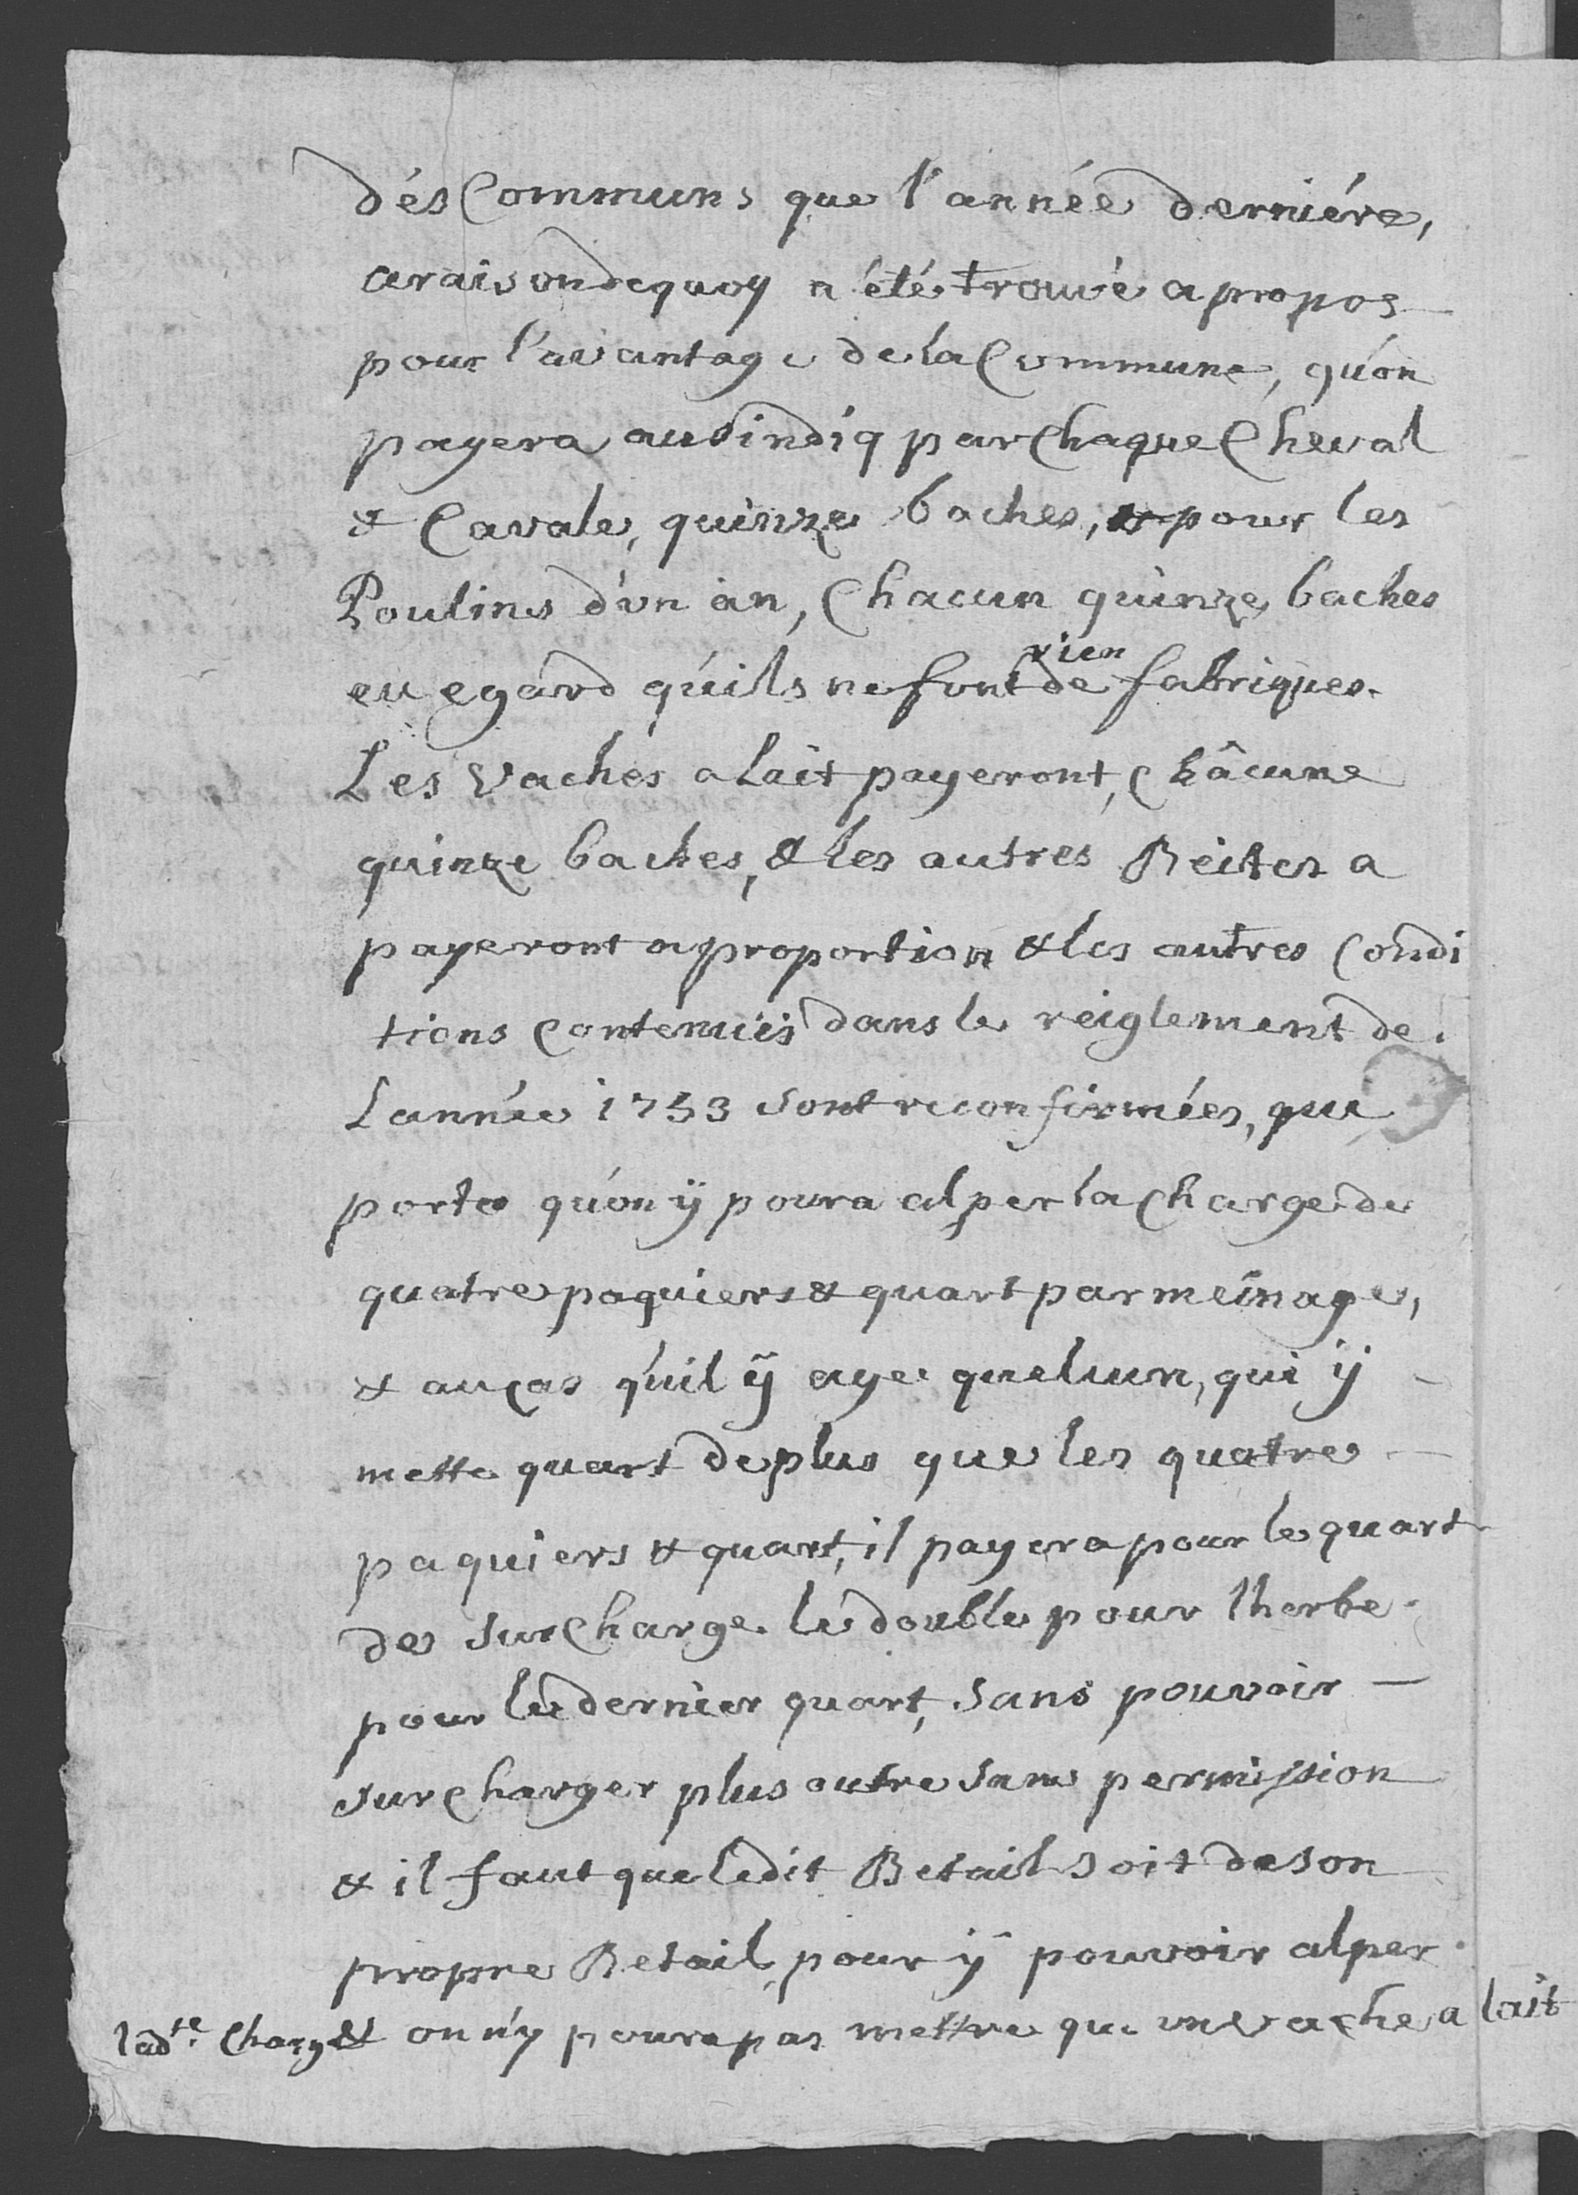 dés Communs que l'année derniére,
a raison dequoy a été trouvé a propos
pour l'avantage de la Commune, qu'on
payera au sindiq par Chaque Cheval
& Cavale, quinze baches, & pour les
Poulins d'vn an, Chacun quinze baches
eu egard qu'ils ne font rien de fabriques.
Les Vaches a Lait payeront, Châcune
quinze baches, & les autres Béites a
payeront a proportion & les autres Condi
tions contenuës dans le réiglement de
Lannée 1753 sont reconfirmées, que
porte qu'on ÿ poura alper la Charge de
quatre paquiers & quart par meinage,
& au cas qu'il ÿ aye quelcun, qui ÿ
mette quart de plus que les quatre
paquiers & quart, il payera pour le quart
de surCharge le double pour lherbe
pour le dernier quart, sans pouvoir
surCharger plus outre sans permission
& il faut que ledit Betail soit de son
propre Betail, pour ÿ pouvoir alper
ladte. Charge & on n'y poura pas mettre que vn vache a lait